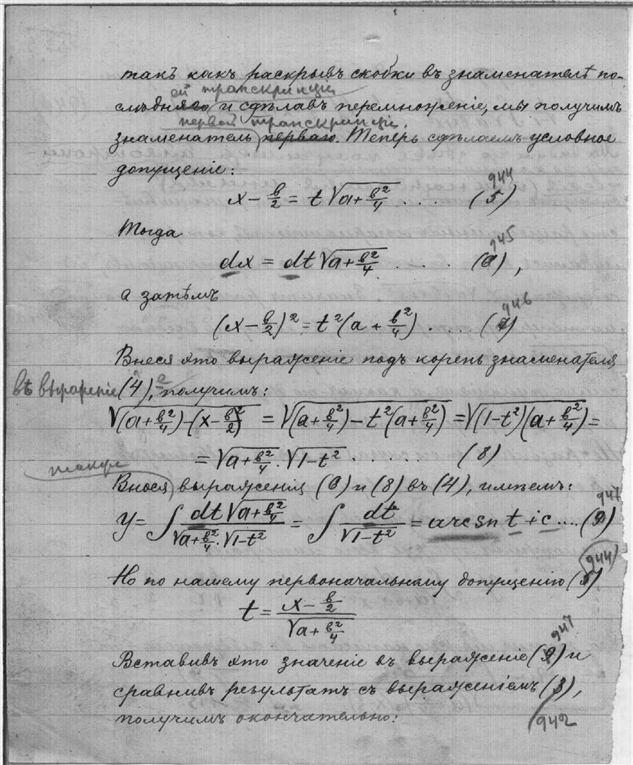 такъ какъ раскрывъ скобки въ знаменателѣ по-
ей транскрипціи
слѣдняго и сдѣлавъ перемноженіе, мы получимъ
первой транскрипціи.
знаменатель перваго. Теперь сдѣлаемъ условное
допущеніе:
x - в/2 = t √(a + в²/4) .... (5) 944
Тогда
dx = dt √(a + в²/4) .... (6) 945,
а затѣмъ
(x - в/2)² = t² (a + в²/4) .... (7) 946
Внеся это выраженіе подъ корень знаменателя
въ выраженіе (4), получимъ:
√((a + в²/4) - (x - в/2)²) = √((a + в²/4) - t² (a + в²/4)) = √((1-t²)(a + в²/4)) =
= √(a + в²/4) . √(1-t²) . (8)
Внося выраженія (6) и (8) въ (4), имѣемъ:
y = ∫ dt √(a + в²/4) / √(a + в²/4) . √(1-t²) = ∫ dt / √(1-t²) = arcsn t + c .... (9) 947
Но по нашему первоначальному допущенію (5) 944
t = (x - в/2) / √(a + в²/4)
Вставивъ это значеніе въ выраженіе (9) 947 и
сравнивъ результатъ съ выраженіемъ (3),
получимъ окончательно: 942